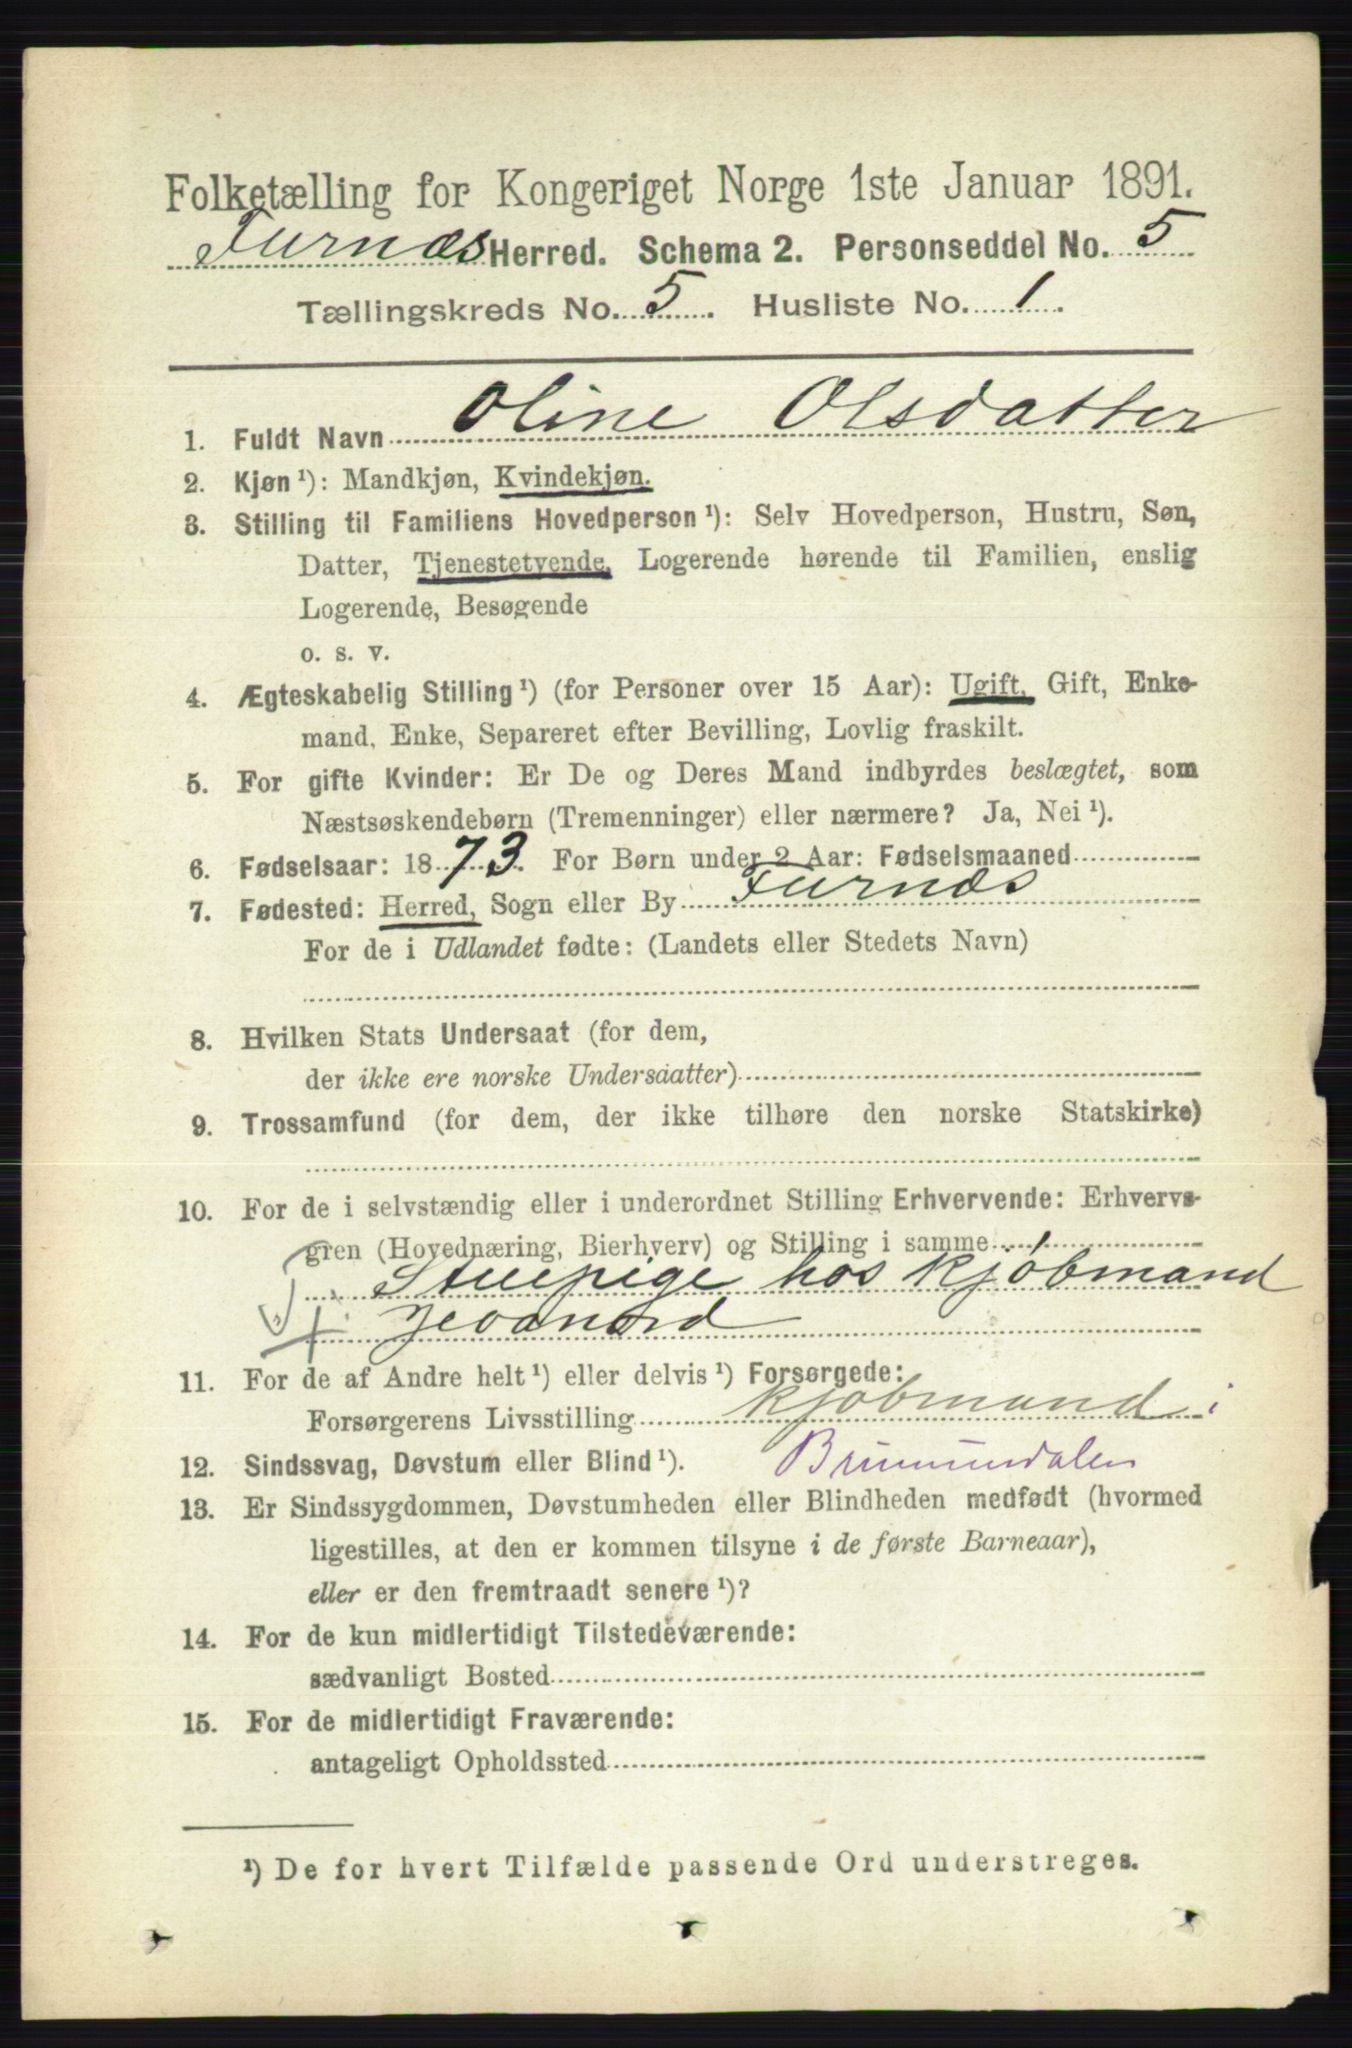 Folketælling for Kongeriget Norge 1ste Januar 1891.
Furnæs Herred. Schema 2. Personseddel No. 5
Tællingskreds No. 5. Husliste No. 1.
1. Fuldt Navn Oline Olsdatter
2. Kjøn ¹): Mandkjøn, Kvindekjøn.
3. Stilling til Familiens Hovedperson ¹): Selv Hovedperson, Hustru, Søn,
Datter, Tjenestetyende, Logerende hørende til Familien, enslig
Logerende, Besøgende
o. s. v.
4. Ægteskabelig Stilling ¹) (for Personer over 15 Aar): Ugift, Gift, Enke-
mand, Enke, Separeret efter Bevilling, Lovlig fraskilt.
5. For gifte Kvinder: Er De og Deres Mand indbyrdes beslægtet, som
Næstsøskendebørn (Tremenninger) eller nærmere? Ja, Nei ¹).
6. Fødselsaar: 1873. For Børn under 2 Aar: Fødselsmaaned
7. Fødested: Herred, Sogn eller By Furnæs
For de i Udlandet fødte: (Landets eller Stedets Navn)
8. Hvilken Stats Undersaat (for dem,
der ikke ere norske Undersaatter)
9. Trossamfund (for dem, der ikke tilhøre den norske Statskirke)
10. For de i selvstændig eller i underordnet Stilling Erhvervende: Erhvervs-
gren (Hovednæring, Bierhverv) og Stilling i samme
Stuepige hos kjøbmand
11. For de af Andre helt ¹) eller delvis ¹) Forsørgede:
Forsørgerens Livsstilling kjøbmand i
12. Sindssvag, Døvstum eller Blind ¹). Brumundalen
13. Er Sindssygdommen, Døvstumheden eller Blindheden medfødt (hvormed
ligestilles, at den er kommen tilsyne i de første Barneaar),
eller er den fremtraadt senere ¹)?
14. For de kun midlertidigt Tilstedeværende:
sædvanligt Bosted
15. For de midlertidigt Fraværende:
antageligt Opholdssted
¹) De for hvert Tilfælde passende Ord understreges.